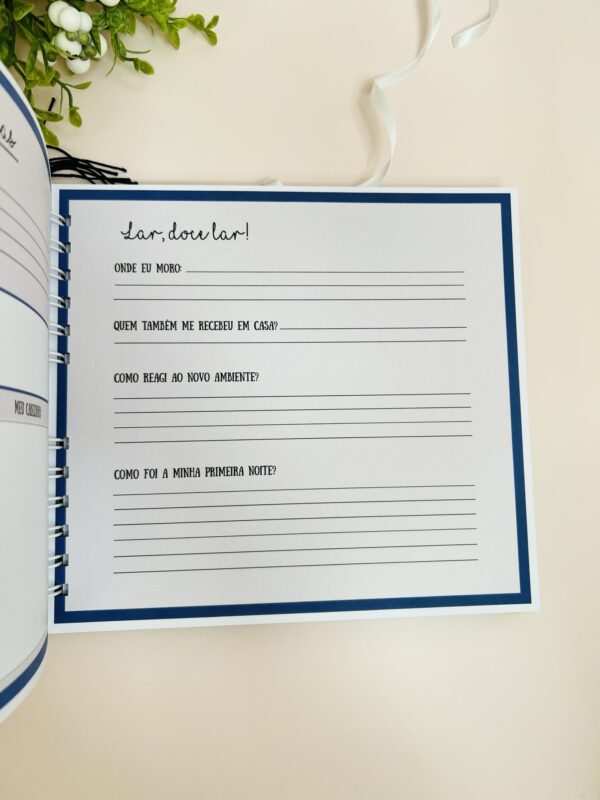 Lar, doce lar!
ONDE EU MORO:
QUEM TAMBÉM ME RECEBEU EM CASA?
COMO REAGI AO NOVO AMBIENTE?
COMO FOI A MINHA PRIMEIRA NOITE?
MEU CABELINHO